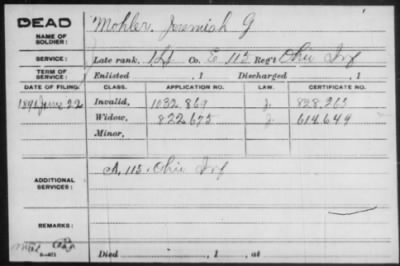 DEAD
NAME OF SOLDIER: Mohler, Jeremiah G
SERVICE: Late rank, Co. E, 115 Reg't Ohio Inf
TERM OF SERVICE: Enlisted , 1 Discharged , 1
DATE OF FILING. CLASS. APPLICATION NO. LAW. CERTIFICATE NO.
1891 June 22 Invalid, 1032 869 J. 828.265
Widow, 822675 J 614.649
Minor,
ADDITIONAL SERVICES: A, 115 Ohio Inf
REMARKS:
Died , 1 , at